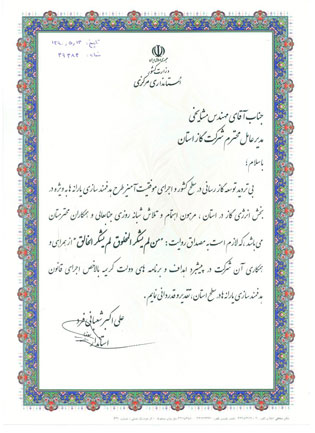 وزارت کشور
استانداری مرکزی
تاریخ:
شماره: ۳۹۳۸۲
جناب آقای مهندس مشایخی
مدیرعامل محترم شرکت گاز استان
با سلام؛
بی تردید توسعه گاز رسانی در سطح کشور و اجرای موفقیت آمیز طرح هدفمند سازی یارانه ها به ویژه در
بخش انرژی گاز در استان، مرهون اهتمام و تلاش شبانه روزی جنابعالی و همکاران محترمتان
می باشد، که لازم است به مصداق روایت: "من لم یشکر المخلوق لم یشکر الخالق" از همراهی و
همکاری آن شرکت در پیشبرد اهداف و برنامه های دولت کریمه بالاخص اجرای قانون
هدفمند سازی یارانه ها در سطح استان، تقدیر و قدردانی نمایم.
علی اکبر شعبانی فرد
استاندار